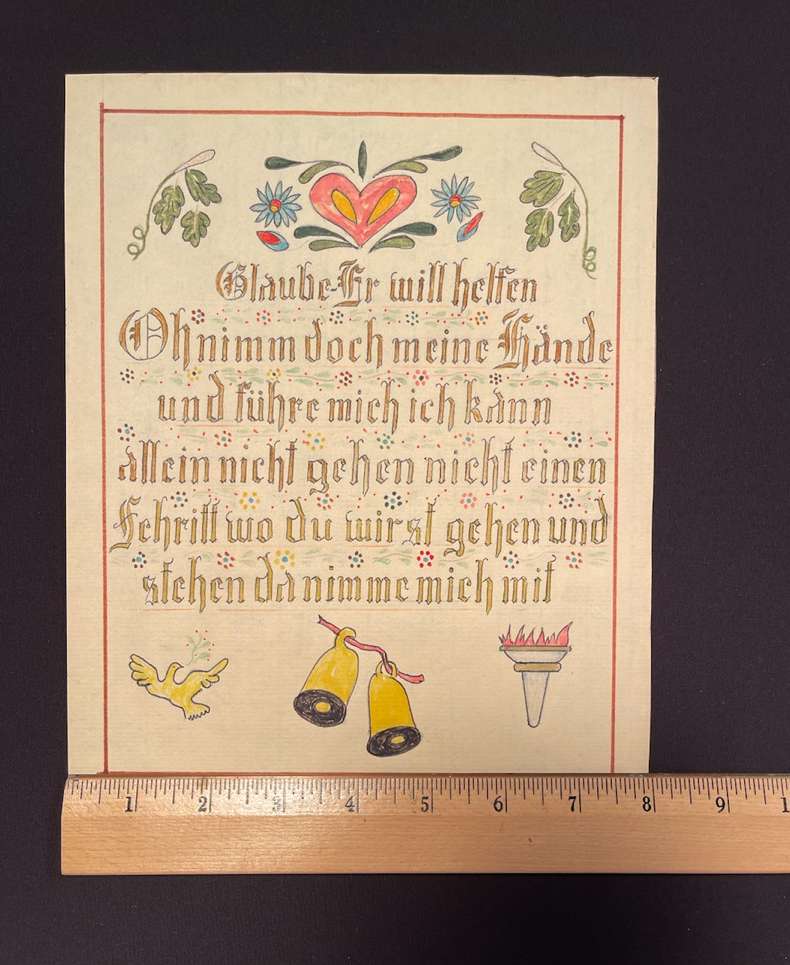 Glaube-Er will helfen
Oh nimm doch meine Hände
und führe mich ich kann
allein nicht gehen nicht einen
Schritt wo du wirst gehen und
stehen da nimm e mich mit
1 2 3 4 5 6 7 8 9 1